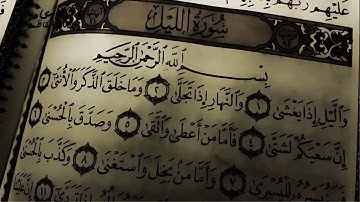 سُورَةُ اللَّيْلِ
بِسْمِ اللَّهِ الرَّحْمَٰنِ الرَّحِيمِ
وَالَّيْلِ إِذَا يَغْشَىٰ ١ وَالنَّهَارِ إِذَا تَجَلَّىٰ ٢ وَمَا خَلَقَ الذَّكَرَ وَالْأُنثَىٰ ٣
إِنَّ سَعْيَكُمْ لَشَتَّىٰ ٤ فَأَمَّا مَنْ أَعْطَىٰ وَاتَّقَىٰ ٥ وَصَدَّقَ بِالْحُسْنَىٰ ٦
فَسَنُيَسِّرُهُ لِلْيُسْرَىٰ ٧ وَأَمَّا مَن بَخِلَ وَاسْتَغْنَىٰ ٨ وَكَذَّبَ بِالْحُسْنَىٰ